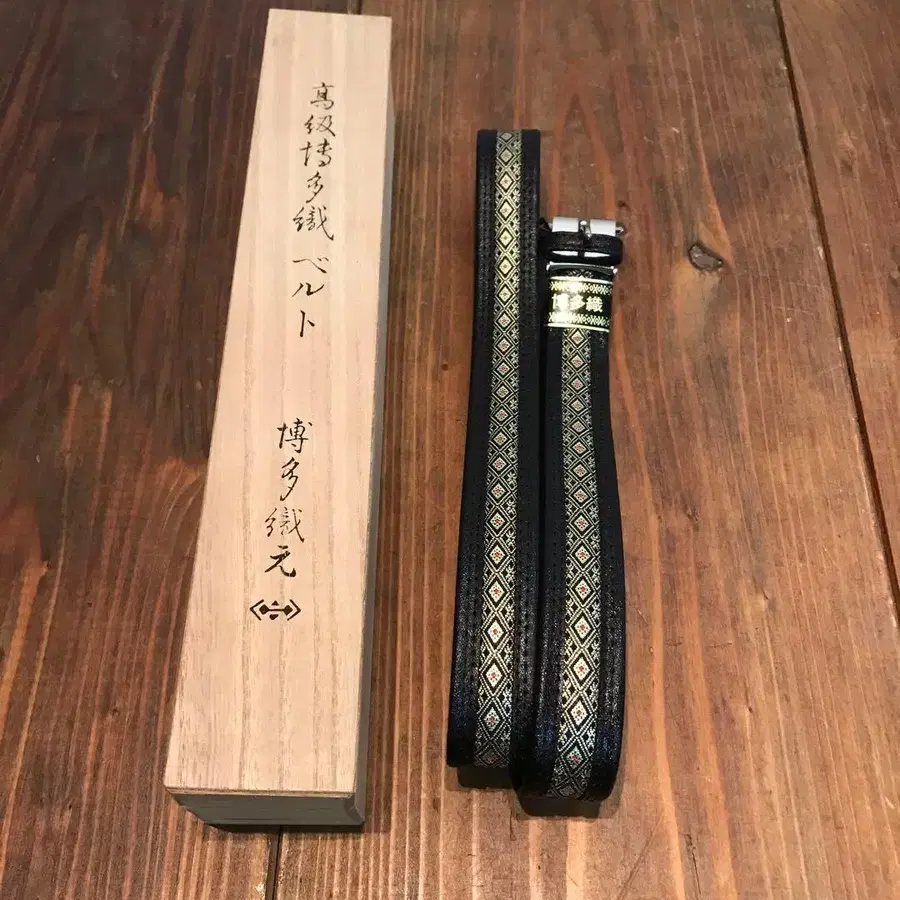 高級博多織 ベルト
博多織元
博多織